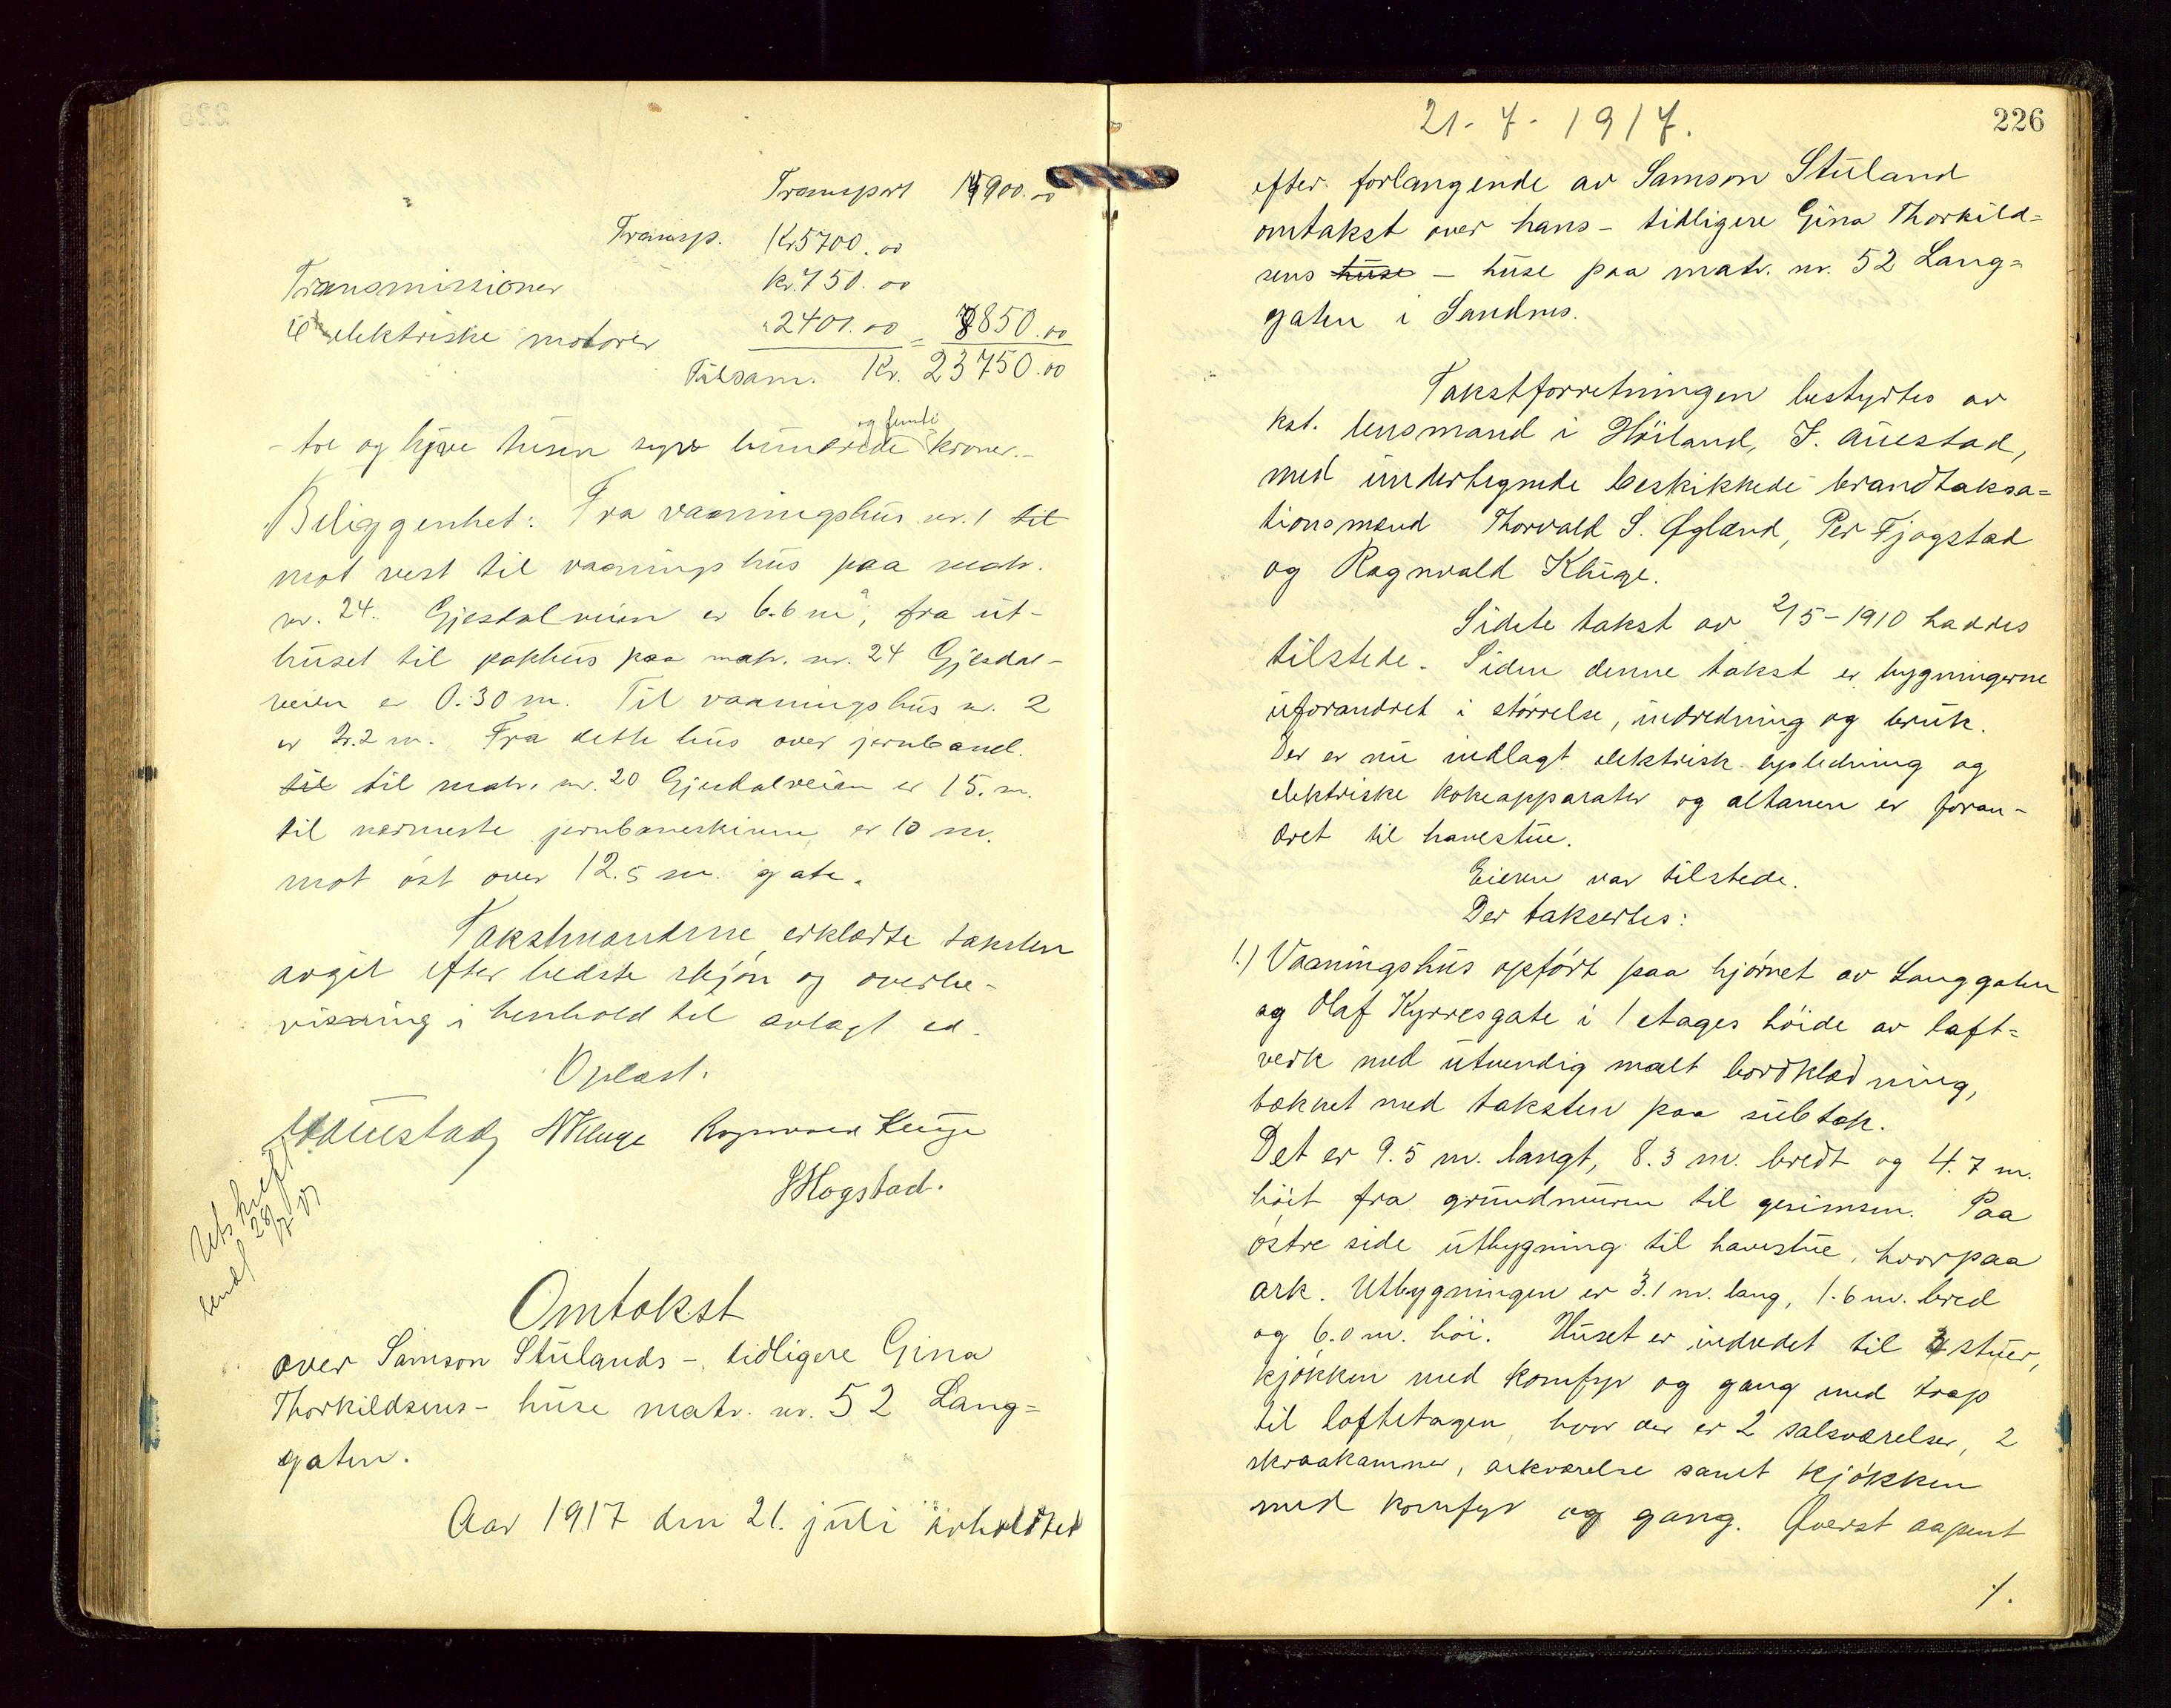 Transport 15900.00
Transp. Kr 5700.00
Transmissioner kr. 750.00
elektriske motorer " 2400.00 = 7850.00
Tilsam. Kr. 23750.00
og femti
- tre og tyve tusen syv hundrede kroner.-
Beliggenhet: Fra vaaningshus nr. 1 til
mot vest til vaaningshus paa matr.
nr. 24. Gjesdalveien er 6.6 m, fra ut-
huset til pakhus paa matr. nr. 24 Gjesdal-
veien er 0.30 m. Til vaaningshus nr. 2
er 2.2 m. Fra dette hus over jernbanel.
til til matr. nr. 20 Gjesdalveien er 15. m.
til nærmeste jernbaneskinne er 10 m.
mot øst over 12.5 m. gate.
Takstmændene erklærte taksten
avgit efter bedste skjøn og overbe-
visning i henhold til avlagt ed.
Oplæst.
Auestad NKluge Ragnvald Kluge
Mogstad.
Utskrift
sendt 28/7 17
Omtakst
over Samson Stulands -, tidligere Gina
Thorkildsens - huse matr. nr. 52 Lang=
gaten.
Aar 1917 den 21. juli avholdtes
21-7-1917.
226
efter forlangende av Samson Stuland
omtakst over hans - tidligere Gina Thorkild=
sens huse - huse paa matr. nr. 52 Lang=
gaten i Sandnes.
Takstforretningen bestyrtes av
kst. lensmand i Høiland, T. Auestad,
med undertegnede beskikkede brandtaksa=
tionsmænd Thorvald S. Øglænd, Per Fjogstad
og Ragnvald Kluge.
Sidste takst av 2/5-1910 haddes
tilstede. Siden denne takst er bygningerne
uforandret i størrelse, indredning og bruk.
Der er nu indlagt elektrisk lysledning og
elektriske kokeapparater og altanen er foran-
dret til havestue.
Eieren var tilstede.
Der taksertes:
1.) Vaaningshus opført paa hjørnet av Langgaten
og Olaf Kyrresgate i 1 etages høide av laft=
verk med utvendig malt bordklædning,
tækket med taksten paa sutak.
Det er 9.5 m. langt, 8.3 m. bredt og 4.7 m.
høit fra grundmuren til gesimsen. Paa
østre side utbygning til havestue, hvorpaa
ark. Utbygningen er 3.1 m. lang, 1.6 m. bred
og 6.0 m. høi. Huset er indredet til 3 stuer,
kjøkken med komfyr og gang med trap
til loftetagen, hvor der er 2 salsværelser, 2
skraakammer, arkværelse samt kjøkken
med komfyr og gang. Øverst aapent
./.